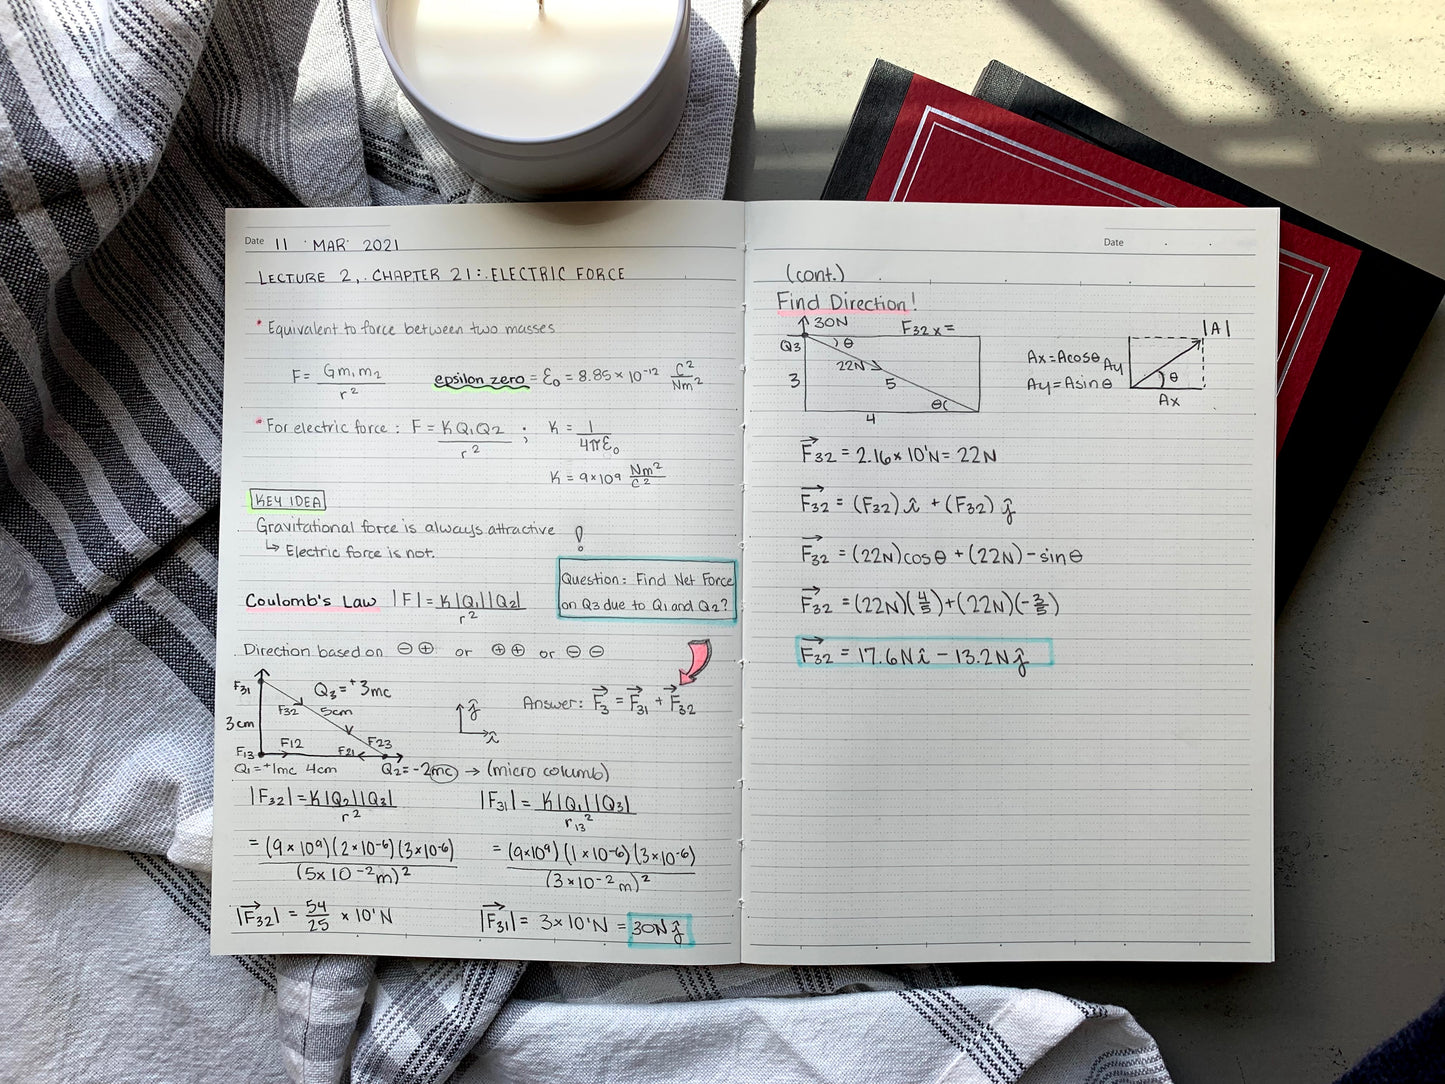 Date 11 MAR 2021
LECTURE 2, CHAPTER 21: ELECTRIC FORCE
* Equivalent to force between two masses
F = Gm₁m₂ / r²
epsilon zero = ε₀ = 8.85 × 10⁻¹² C² / Nm²
* For electric force: F = KQ₁Q₂ / r² ; K = 1 / 4πε₀
K = 9×10⁹ Nm² / C²
KEY IDEA
Gravitational force is always attractive
↳ Electric force is not. !
Question: Find Net Force
on Q3 due to Q1 and Q2?
Coulomb's Law |F| = K|Q₁||Q₂| / r²
Direction based on ⊖⊕ or ⊕⊕ or ⊖⊖
F31
Q₃ = +3mc
F32 5cm
3cm
F12 F23
F13 F21
Q₁ = +1mc 4cm Q₂ = -2mc → (micro columb)
ĵ
î
Answer: F⃗₃ = F⃗₃₁ + F⃗₃₂
|F₃₂| = K|Q₂||Q₃| / r²
= (9 × 10⁹)(2×10⁻⁶)(3×10⁻⁶) / (5×10⁻²m)²
|F⃗₃₂| = 54/25 × 10¹N
|F₃₁| = K|Q₁||Q₃| / r₁₃²
= (9×10⁹)(1×10⁻⁶)(3×10⁻⁶) / (3×10⁻²m)²
|F⃗₃₁| = 3×10¹N = 30N ĵ
Date
(cont.)
Find Direction!
30N F32x=
Q3 θ
22N
3 5
θ
4
Ax = Acosθ
Ay = Asinθ
|A|
Ay θ
Ax
F⃗₃₂ = 2.16×10¹N = 22N
F⃗₃₂ = (F₃₂)î + (F₃₂)ĵ
F⃗₃₂ = (22N)cosθ + (22N)-sinθ
F⃗₃₂ = (22N)(4/5)+(22N)(-3/5)
F⃗₃₂ = 17.6Nî - 13.2Nĵ